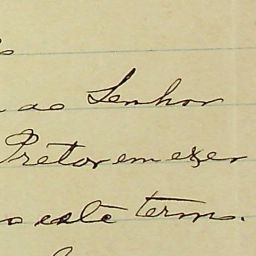 ao Senhor
Pretor em exer
o este termo.